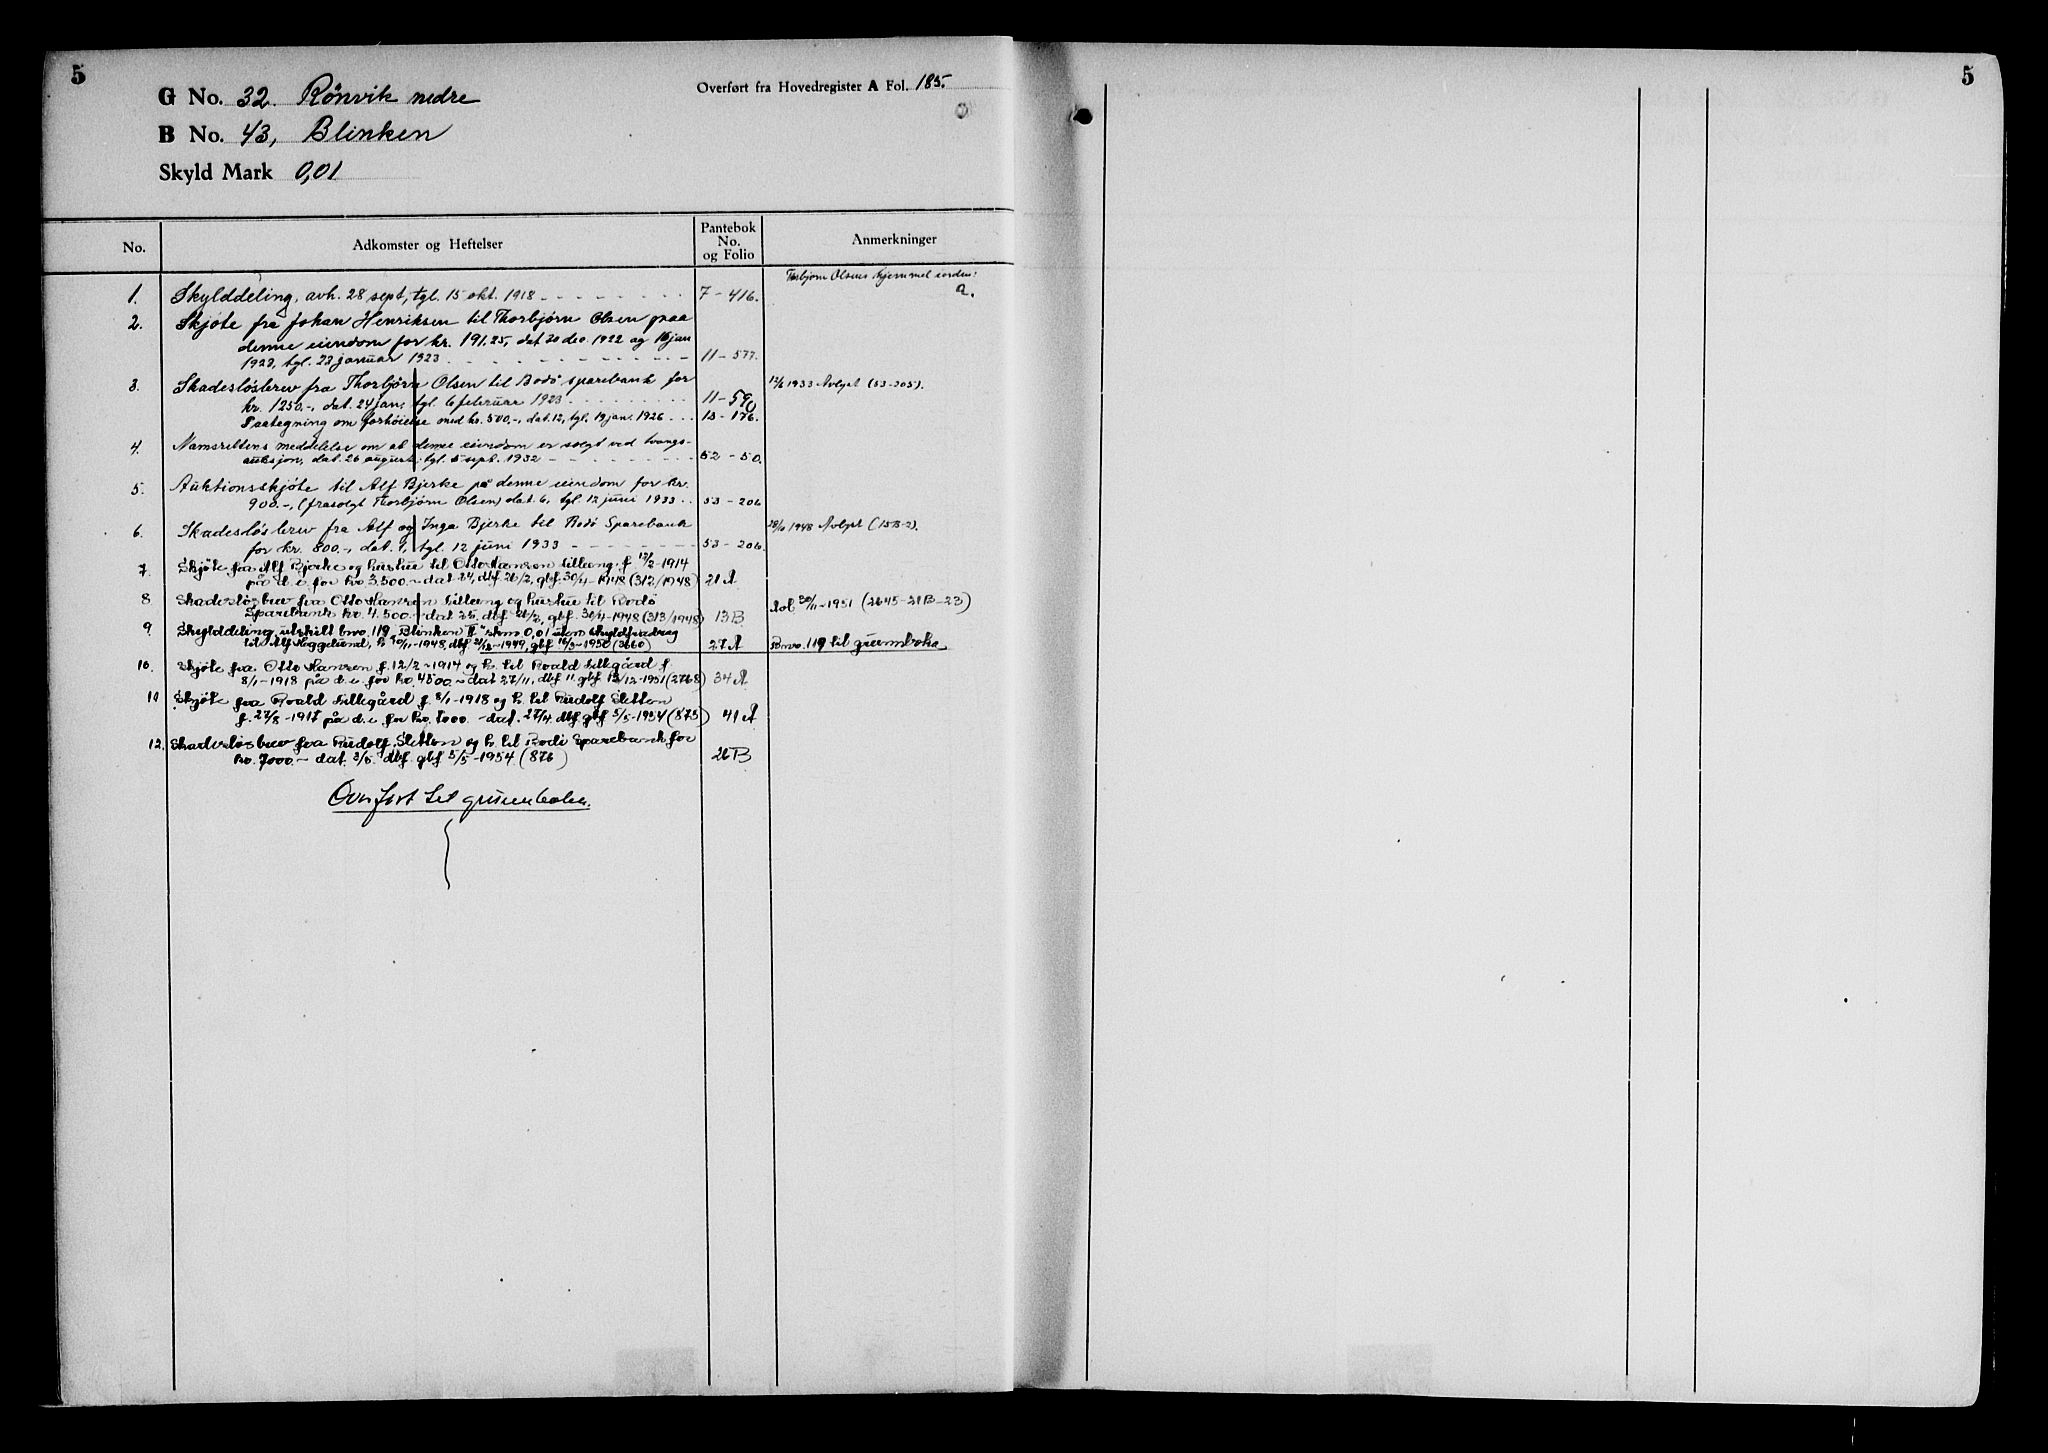 5
5
G No. 32. Rønvik nedre
Overført fra Hovedregister A Fol. 185.
B No. 43, Blinken
Skyld Mark 0,01
No.
Adkomster og Heftelser
Pantebok No. og Folio
Anmerkninger
Thorbjørn Olsens hjemmel
2.
1. Skylddeling, avh. 28 sept, tgl. 15 okt. 1918 7 - 416.
2. Skjøte fra Johan Henriksen til Thorbjørn Olsen paa
denne eiendom for kr. 191.25, dat 20 dec. 1922 og 16 jan
1923, tgl. 22 januar 1923 11 - 577.
3. Skadesløsbrev fra Thorbjørn Olsen til Bodø sparebank for 12/6 1933 Avlyst (53-205).
kr. 1250.-, dat. 24 jan, tgl. 6 februar 1923 11 - 590
Paategning om forhøielse med kr. 500.-, dat. 12, tgl. 19 jan. 1926 13 - 176.
4. Namsrettens meddelelse om at denne eiendom er solgt ved tvangs-
auksjon, dat. 26 august, tgl. 5 sept. 1932 52 - 50.
5. Auktionsskjøte til Alf Bjerke på denne eiendom for kr.
900.-, (frasolgt Thorbjørn Olsen) dat. 6, tgl. 12 juni 1933 53 - 206
6. Skadesløsbrev fra Alf og Inga Bjerke til Bodø Sparebank 28/10 1948 Avlyst (15B-2).
for kr. 800.-, dat. 1, tgl. 12 juni 1933 53 - 206.
7. Skjøte fra Alf Bjerke og hustru til Otto Hansen Lilleeng, f 12/2-1914
på d. e. for kr. 3.500.- dat 24, dbf 26/2, gbf. 30/4-1948 (312/1948) 21 A
8 Skadesløsbrev fra Otto Hansen Lilleeng og hustru til Bodø Avl 30/11-1951 (2645-21B-23)
Sparebank kr. 4.500.- dat 25, dbf 26/2, gbf. 30/4-1948 (313/1948) 13B
9. Skylddeling, utskilt bnr. 119 „Blinken II" skm 0,01 uten skyldfradrag
til Alf Heggelund, h 30/11-1948, dbf 21/12-1949, gbf 16/3-1950 (3660) 27 A Bnr. 119 til grunnboka
10. Skjøte fra Otto Hansen f. 12/2-1914 og h. til Roald Lillegård f
8/1-1918 på d. e for kr. 4500.- dat 27/11, dbf 11. gbf 12/12-1951 (2768) 34 A
11 Skjøte fra Roald Lillegård f. 8/1-1918 og h. til Rudolf Sletten
f. 27/8-1917 på d. e for kr. 7000.- dat. 27/4. dbf gbf 5/5-1954 (875) 41 A
12. Skadesløsbrev fra Rudolf Sletten og h. til Bodø Sparebank for
kr. 7000.- dat. 3/5. dbf. gbf 5/5-1954 (876) 26 B
Overført til grunnboken.